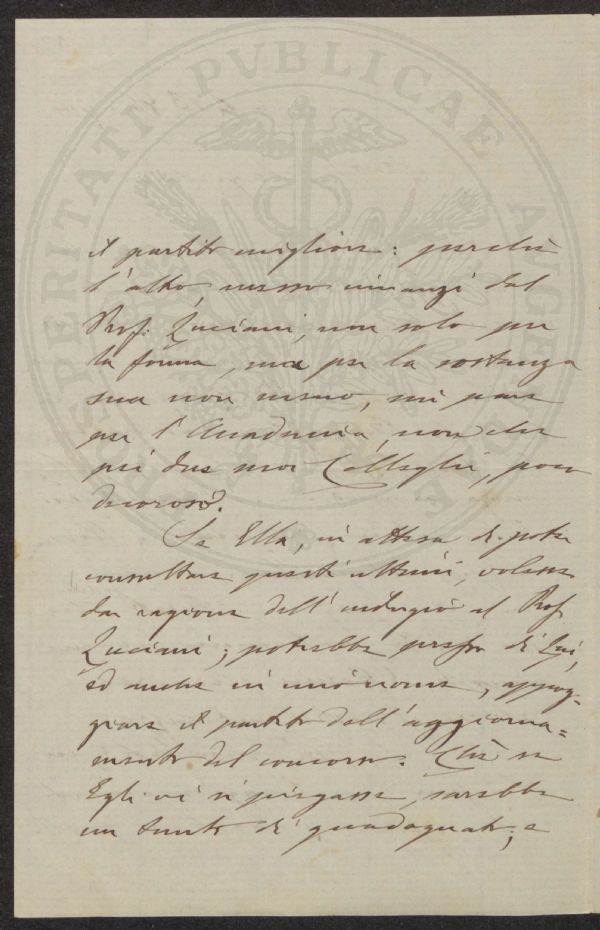 POSTERITATI PVBLICAE
il partito migliore: perchè
l'altro messo innanzi dal
Prof. Luciani, non solo per
la forma, ma per la sostanza
sua non meno, mi pare
per l'Accademia, non che
pei due suoi Colleghi, poco
decoroso.
Se Ella, in attesa di poter
consultare questi ultimi, volesse
dar ragione dell'indugio al Prof.
Luciani; potrebbe presso di Lui,
ed anche in mio nome, appog-
giare il partito dell'aggiorna=
mento del concorso. Chè se
Egli vi si piegasse, sarebbe
un tanto di guadagnato; e